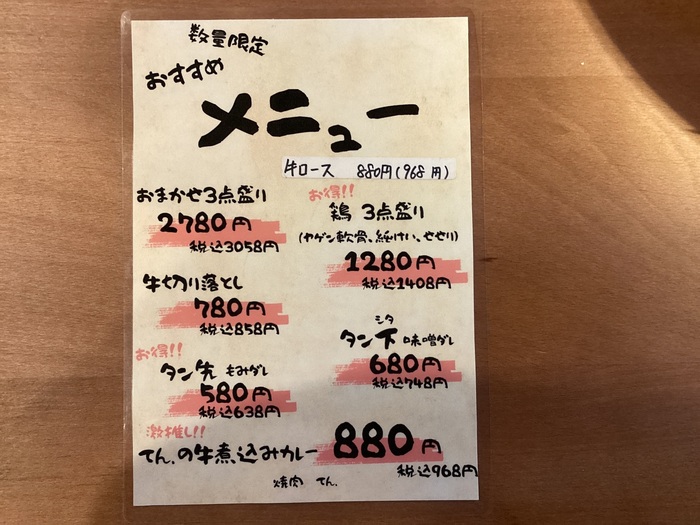 数量限定
おすすめ
メニュー
牛ロース 880円(968円)
おまかせ3点盛り
2780円
税込3058円
お得!!
鶏 3点盛り
(ヤゲン軟骨、紅けい、せせり)
1280円
税込1408円
牛切り落とし
780円
税込858円
シタ
タン下 味噌ダレ
680円
税込748円
お得!!
タン先 もみダレ
580円
税込638円
激推し!!
てん.の牛煮込みカレー 880円
税込968円
焼肉 てん.